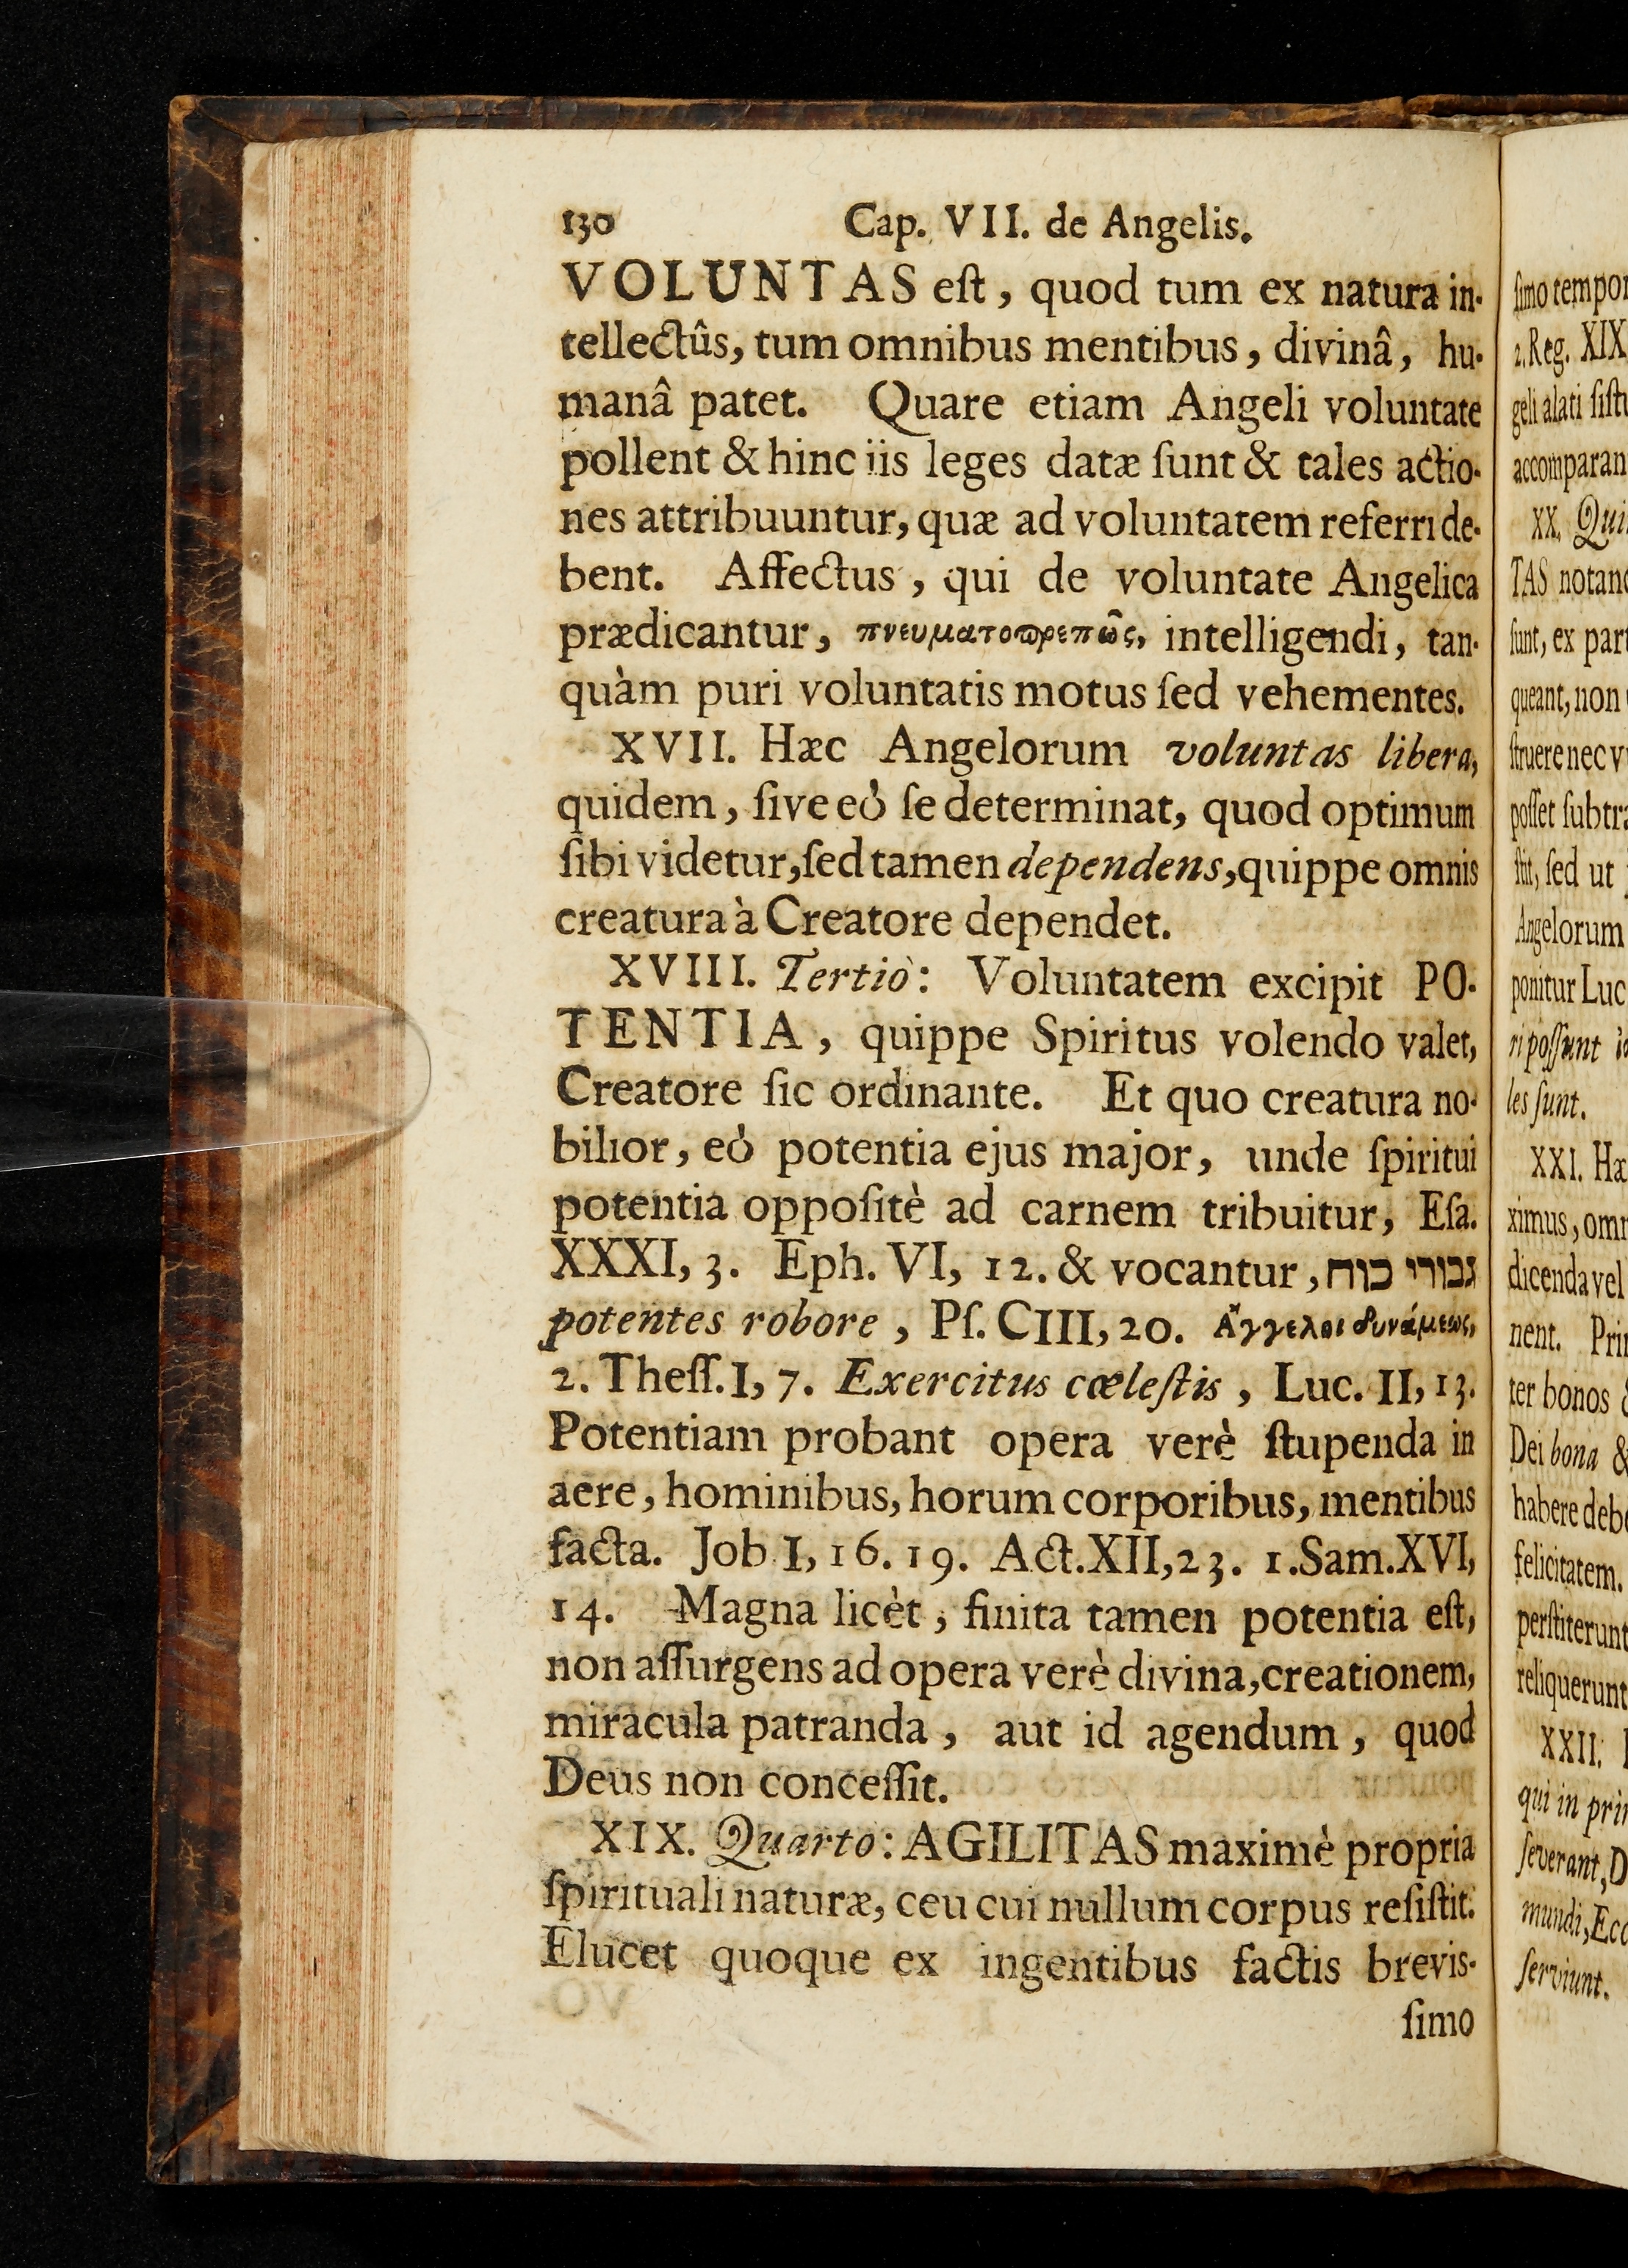 130 Cap. VII. de Angelis.
VOLUNTAS eſt, quod tum ex natura in-
tellectûs, tum omnibus mentibus, divinâ, hu-
manâ patet. Quare etiam Angeli voluntate
pollent & hinc iis leges datæ ſunt & tales actio-
nes attribuuntur, quæ ad voluntatem referri de-
bent. Affectus, qui de voluntate Angelica
prædicantur, πνευματοπρεπῶς, intelligendi, tan-
quàm puri voluntatis motus ſed vehementes.
XVII. Hæc Angelorum voluntas libera,
quidem, ſive eò ſe determinat, quod optimum
ſibi videtur, ſed tamen dependens, quippe omnis
creatura à Creatore dependet.
XVIII. Tertiò: Voluntatem excipit PO-
TENTIA, quippe Spiritus volendo valet,
Creatore ſic ordinante. Et quo creatura no-
bilior, eò potentia ejus major, unde ſpiritui
potentia oppoſitè ad carnem tribuitur, Eſa.
XXXI, 3. Eph. VI, 12. & vocantur, גבורי כוח
potentes robore, Pſ. CIII, 20. Ἄγγελοι δυνάμεως,
2. Theſſ. I, 7. Exercitus cœleſtis, Luc. II, 13.
Potentiam probant opera verè ſtupenda in
aere, hominibus, horum corporibus, mentibus
facta. Job I, 16. 19. Act. XII, 23. 1. Sam. XVI,
14. Magna licèt, finita tamen potentia eſt,
non aſſurgens ad opera verè divina, creationem,
miracula patranda, aut id agendum, quod
Deus non conceſſit.
XIX. Quarto: AGILITAS maximè propria
ſpirituali naturæ, ceu cui nullum corpus reſiſtit.
Elucet quoque ex ingentibus factis brevis-
ſimo
ſimo
2. Reg. XIX
geli alati
XX.
TAS
ſunt, ex
queant, non
nec
poſſet
ſed ut
Angelorum
ponitur Luc
poſſunt
les ſunt.
XXI.
ximus,
dicenda vel
nent.
ter bonos
Dei bona &
habere
felicitatem.
perſtiterunt
reliquerunt
XXII.
qui in
ſeverant,
mundi,
ſerviunt.